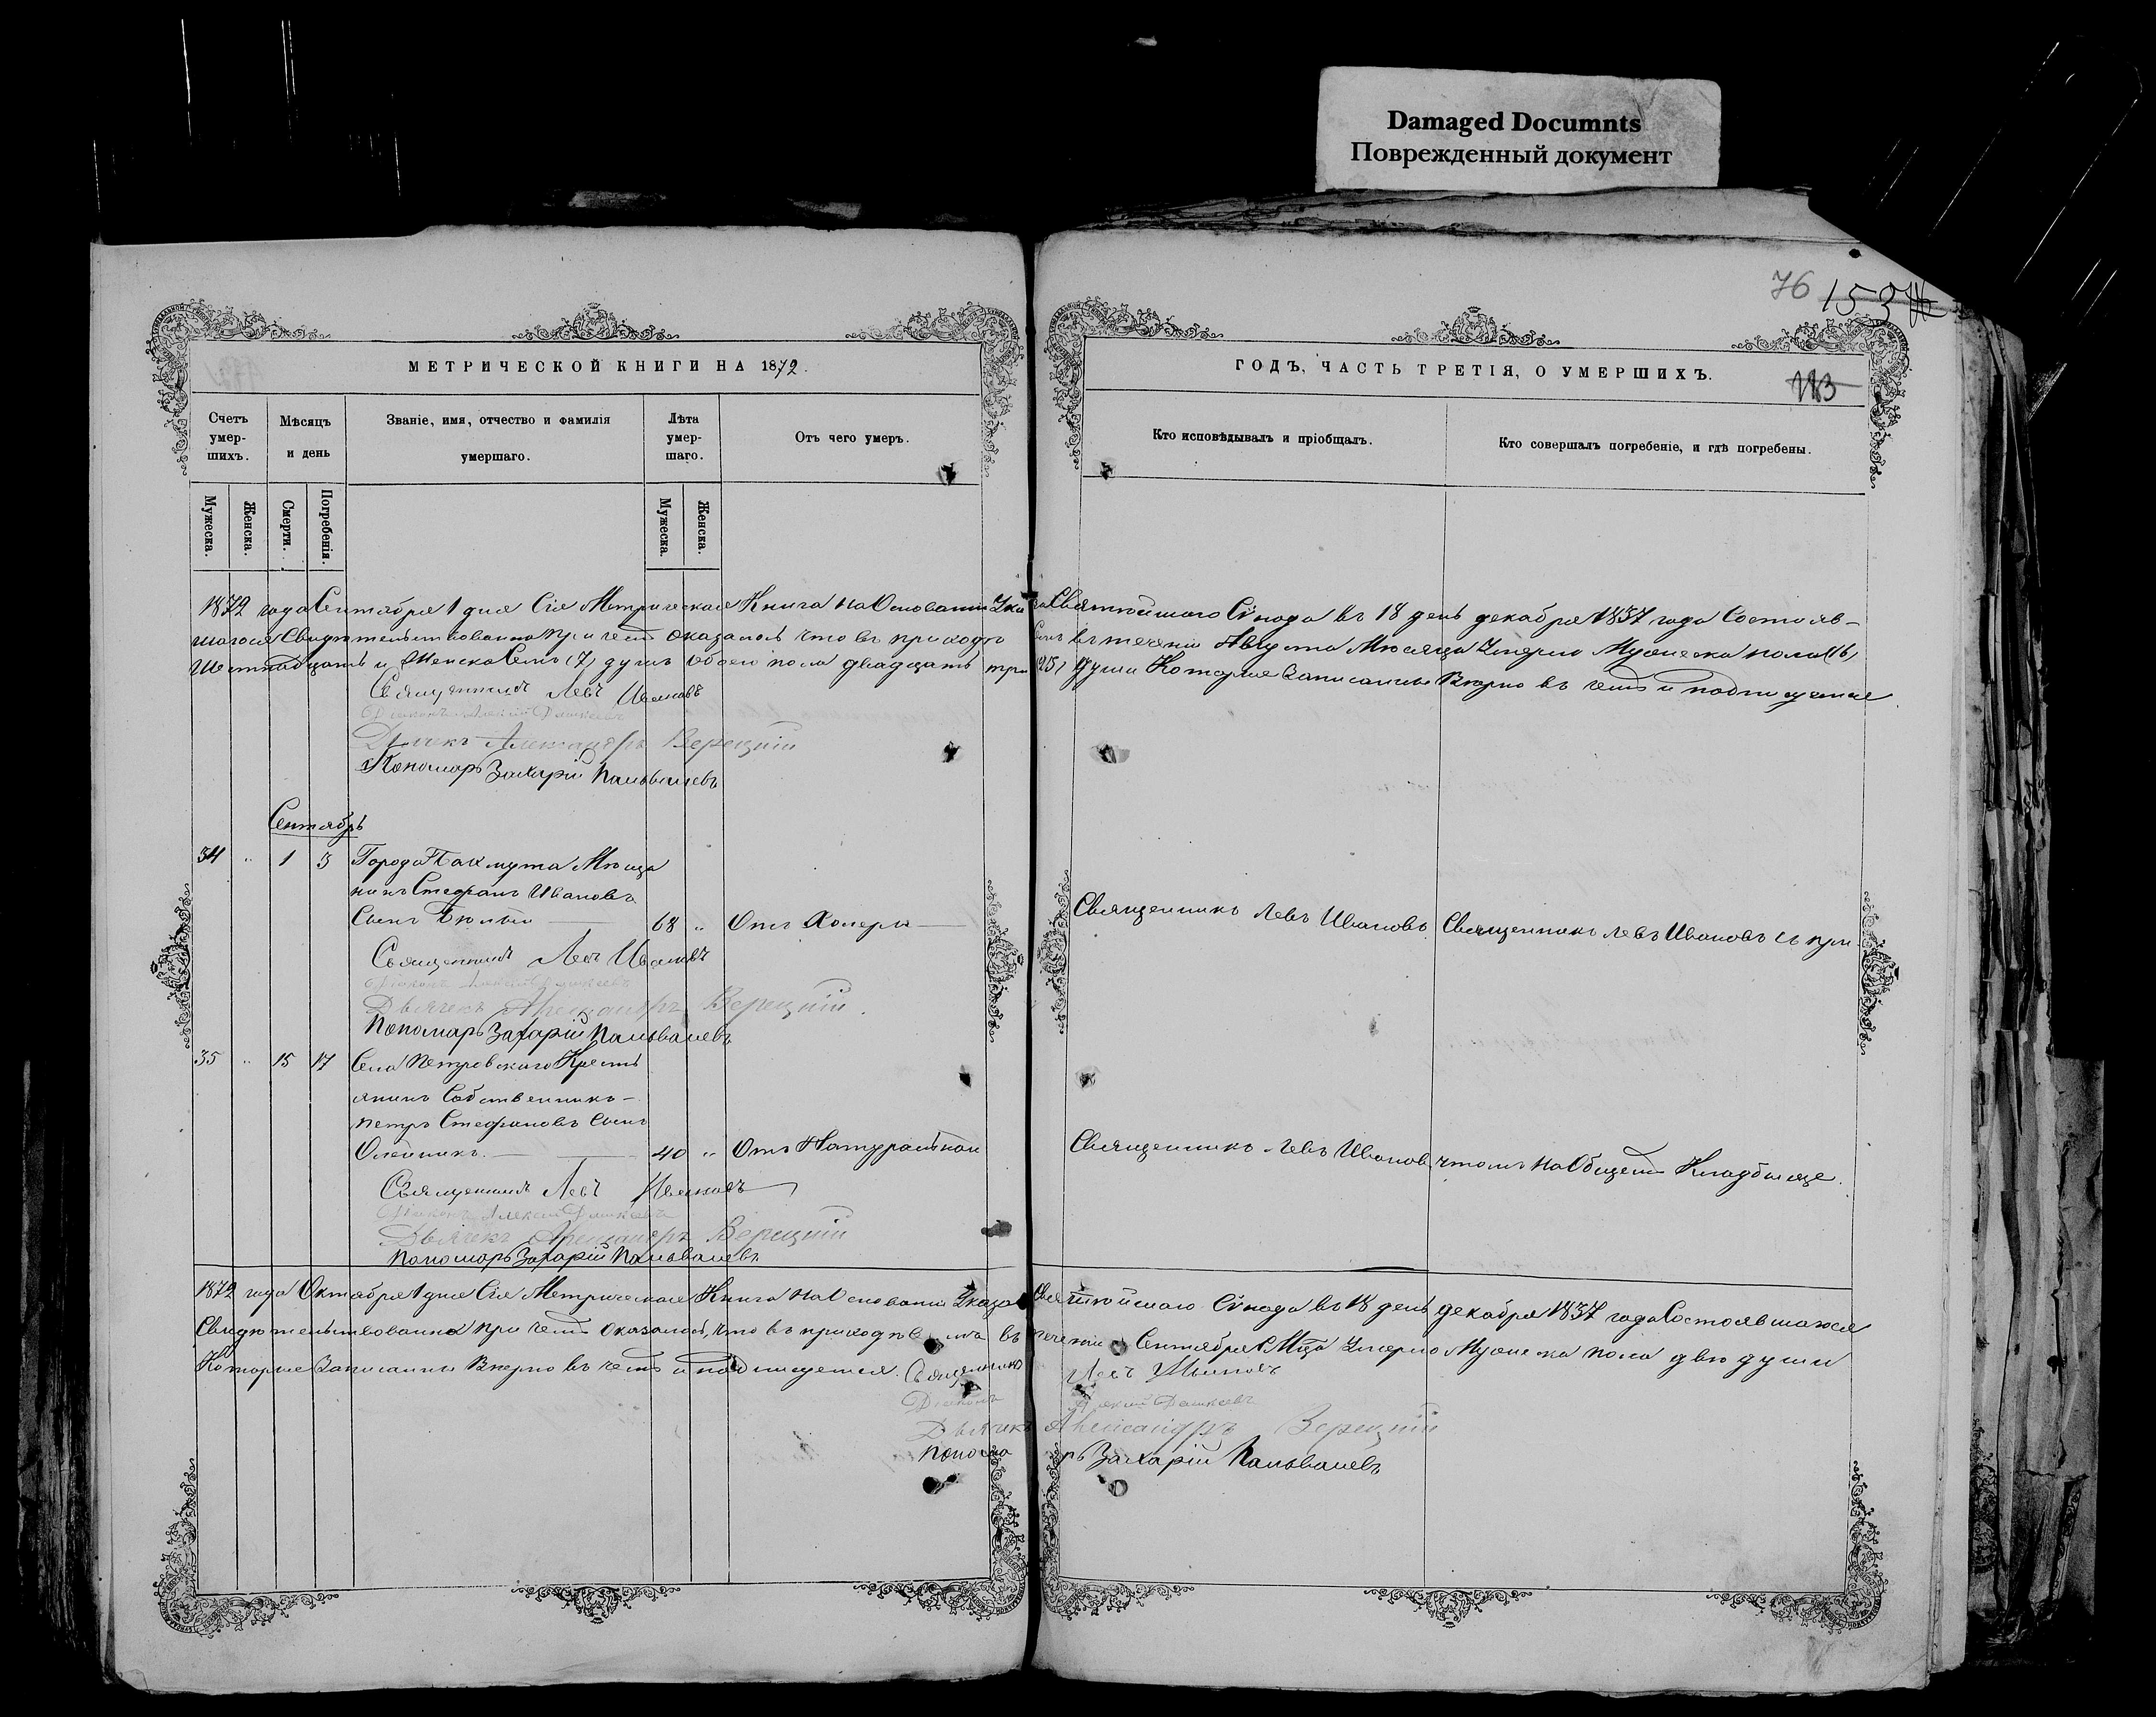 Damaged Documnts
Поврежденный документ
76 153
МЕТРИЧЕСКОЙ КНИГИ НА 1872.
ГОДЪ, ЧАСТЬ ТРЕТІЯ, О УМЕРШИХЪ.
Счетъ умер- шихъ.
Мѣсяцъ и день
Званіе, имя, отчество и фамилія умершаго.
Лѣта умер- шаго.
Отъ чего умеръ.
Кто исповѣдывалъ и пріобщалъ.
Кто совершалъ погребеніе, и гдѣ погребены.
Мужеска. Женска. Смерти. Погребенія. Мужеска. Женска.
1872 года Сентября 1 дня Сія Метрическая Книга на Основаніи Указа Святѣйшаго Сѵнода въ 18 день декабря 1837 года Состояв-
шагося Свидѣтельствованна при чемъ оказалось что въ приходѣ въ теченіи Августа Мѣсяца Умерло Мужеска пола
и Женска Семь (7) душъ обоего пола двадцать три души Которые Записанны Вѣрно въ чемъ и подписуемся
Священникъ Левъ Ивановъ
Діаконъ Алексій Дашкеевъ
Дьячекъ Александръ Верецкій
Пономарь Захарій
Сентябрь
34 " 1 3 Города Бахмута Мѣща
нинъ Стефанъ Ивановъ
Сынъ 68 " Отъ Холеры Священникъ Левъ Ивановъ Священникъ Левъ Ивановъ съ при
Священникъ Левъ Ивановъ
Дьячекъ Александръ Верецкій
Пономарь Захарій
35 " 15 17 Села Петровскаго Кресть
янинъ Собственникъ-
Петръ Стефановъ Сынъ
Олейникъ. 40 " Отъ Натуральной Священникъ Левъ Ивановъ чтомъ на Общемъ Кладбище.
Священникъ Левъ Ивановъ
Діаконъ Алексій Дашкеевъ
Дьячекъ Александръ Верецкій
Пономарь Захарій
1872 года Октября 1 дня Сія Метрическая Книга на Основаніи Указа Святѣйшаго Сѵнода въ 18 день декабря 1837 года Состоявшагося
Свидѣтельствованна при чемъ оказалось, что въ приходѣ въ теченіи Сентября Умерло Мужеска пола двѣ души
Которые Записанны Вѣрно въ чемъ и подписуемся. Священникъ Левъ Ивановъ
Діаконъ Алексій Дашкеевъ
Дьячекъ Александръ Верецкій
Пономарь Захарій